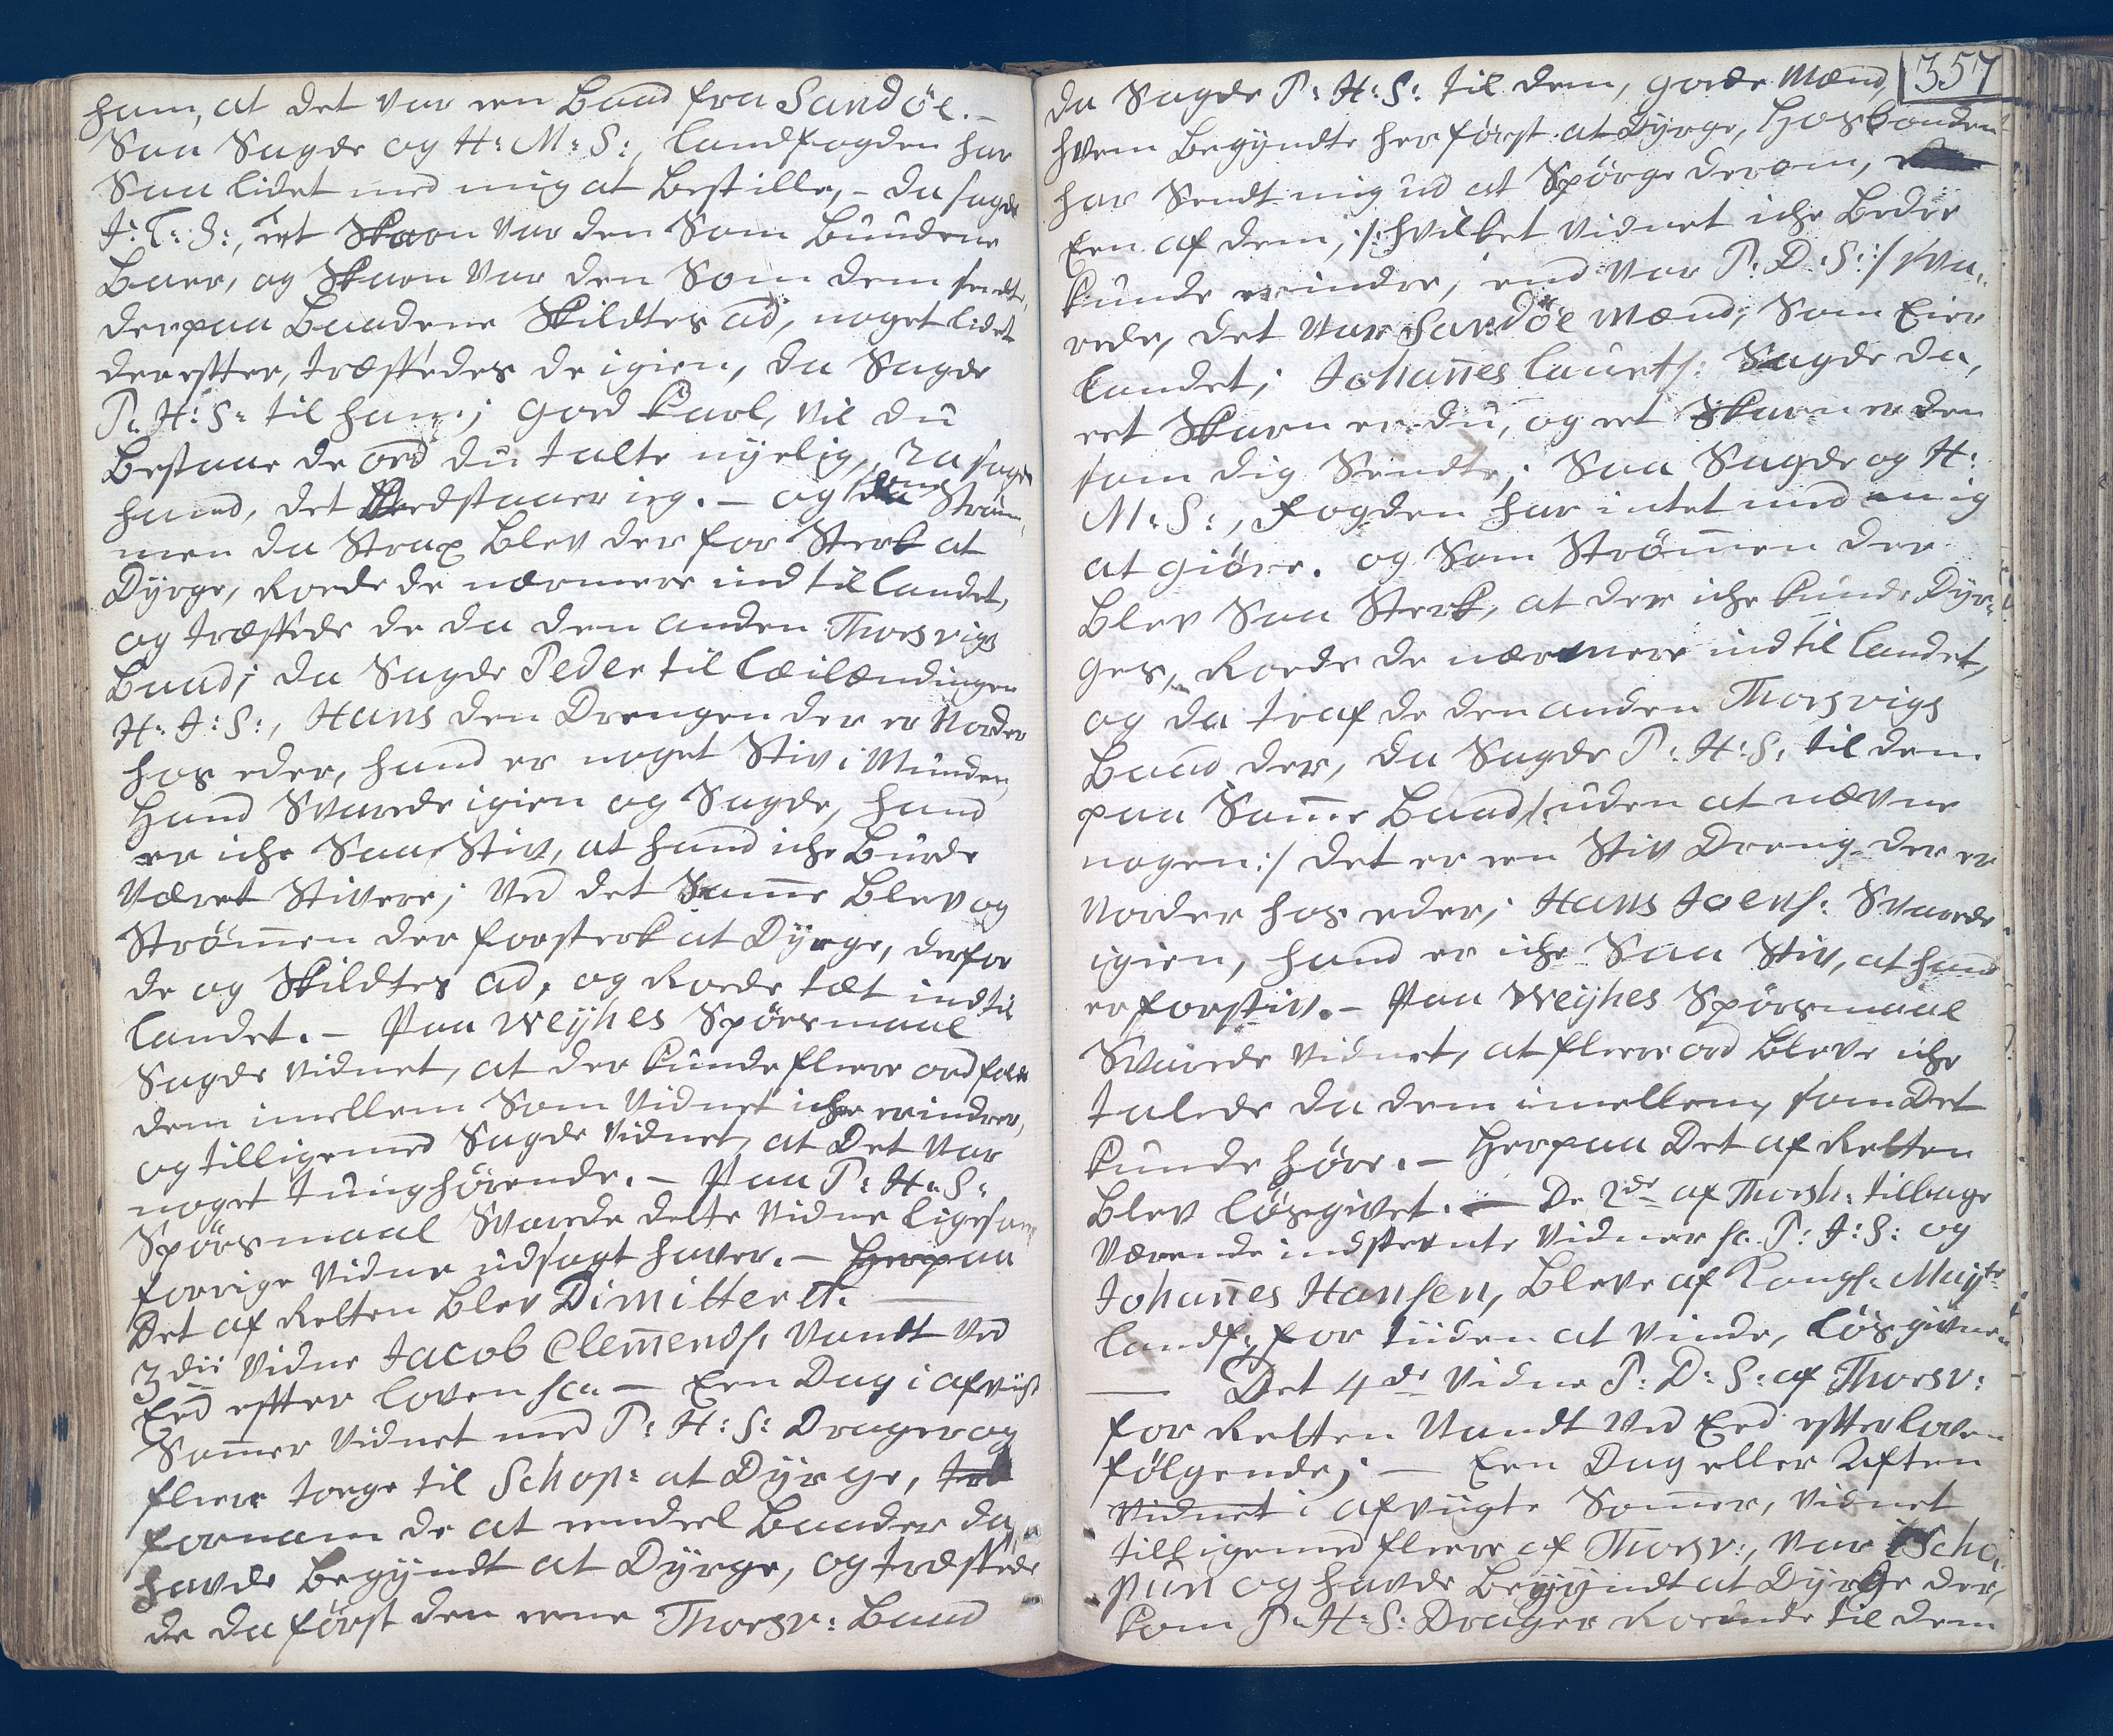 ham, at det var een Baad fra Sandöe. –
Saa Sagde og H: M: S:, Landfogden har
Saa lidet med mig at bestille, – da sagde
J: S:, eet Skarn var den Som Buudene
Baer, og Skarn var den Som dem sendte,
derpaa Baadene Skildtes ad, noget lidet
derefter, træffedes de igien, da Sagde
P: H: S: til ham; goed Karl, vil du
bestaae de ord du talte nyelig, Ja sagde
hand, det Vedstaaer ieg. – og Ström-
men da Strax blev der for Sterk at
Dÿrge, Roede de nærmere ind til Landet,
og træffede de da den anden Thorsvigs
Baad; da Sagde Peder til Leilændingen
H: J: S:, Hans den Drengen der er Vorder
hos eder, hand er noget Stiv i Munden,
Hand Svarede igien og Sagde, hand
er iche Saa Stiv, at hand iche burde
været Stivere; ved det Samme blev og
Strömmen der for sterk at Dÿrge, derfor
de og Skildtes ad, og Roede tæt ind til
Landet. – Paa Weÿhes Spörsmaal
Sagde Vidnet, at der kunde fleere ord falde
dem imellem Som Vidnet iche erindrer,
og tilligemed Sagde Vidnet, at Det var
noget tunghörende. – Paa P: H: S:
Spörsmaal Svarede dette Vidne ligesom
forrige Vidne udsagt haver. – Herpaa
Det af Retten blev Dimitteret. –
3die Vidne Jacob Clemends: Vandt ved
Eed efter Loven sa: – Een Dag i afvigt
Sommer Vidnet med P: H: S: Drager og
fleere toege til Schop: at Dÿrge,
fornam de at eendeel Baader da
havde begyndt at Dÿrge, og træffede
de da först den eene Thorsv: Baad
357
da Sagde P: H: S: til dem, goede Mænd,
hvem begyndte her først at Dÿrge, Hosbonden
har Sendt mig ud at Spörge derom,
Een af dem, /: hvilket Vidnet iche bedre
kunde erindre, end var P: D: S: :/ sva-
rede, det var Sandöe Mænd, Som Eier
Landet; Johannes Laurets: Sagde da,
eet Skarn er du, og eet Skarn er den
som dig Sendte; Saa Sagde og H:
M: S:, Fogden har intet med mig
at giöre. og Som Strömmen der
blev Saa Sterk, at der iche kunde Dÿr-
ges, Roede de nærmere ind til Landet,
og da traf de den anden Thorsvigs
Baad der, da Sagde P: H: S: til dem
paa Samme Baad /: uden at nævne
nogen :/ det er een Stiv Dreng der er
Vorder hos eder; Hans Joens: Svarede
igien, hand er iche Saa Stiv, at hand
er forstiv. – Paa Weÿhes Spörsmaal
Svarede Vidnet, at fleere ord bleve iche
talede da dem imellem, som Det
kunde höre. – Herpaa Det af Retten
blev lösgivet. – De 2de af Thorsh: tilbage
Værende indstevnte Vidner sc. P: J: S: og
Johannes Hansen, bleve af Kongl: Mayts
Landf: for tiiden at vinde, lösgivne
– Det 4de Vidne P: D: S: af Thorsv:
for Retten Vandt ved Eed efter Loven
fölgende; – Een Dag eller Aften
Vidnet i afvigte Sommer, Vidnet
tilligemed fleere af Thorsv:, var i Scho-
pun og havde begyndt at Dÿrge der,
kom P: H: S: Drager Roende til dem